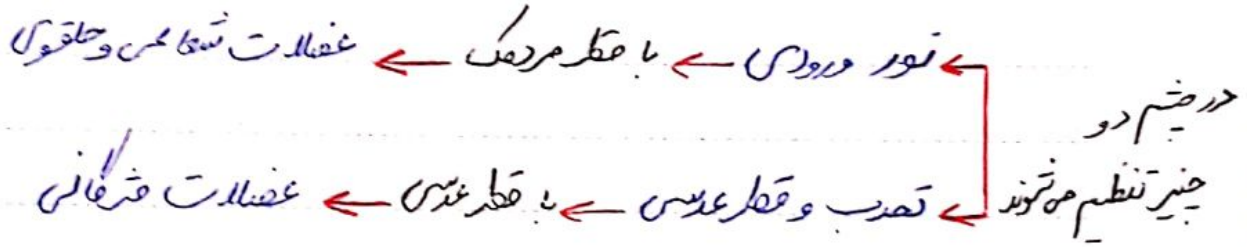 در چشم دو
چیز تنظیم می‌شوند
نور ورودی ← با قطر مردمک ← عضلات شعاعی و حلقوی
تحدب و قطر عدسی ← با قطر عدسی ← عضلات مژگانی